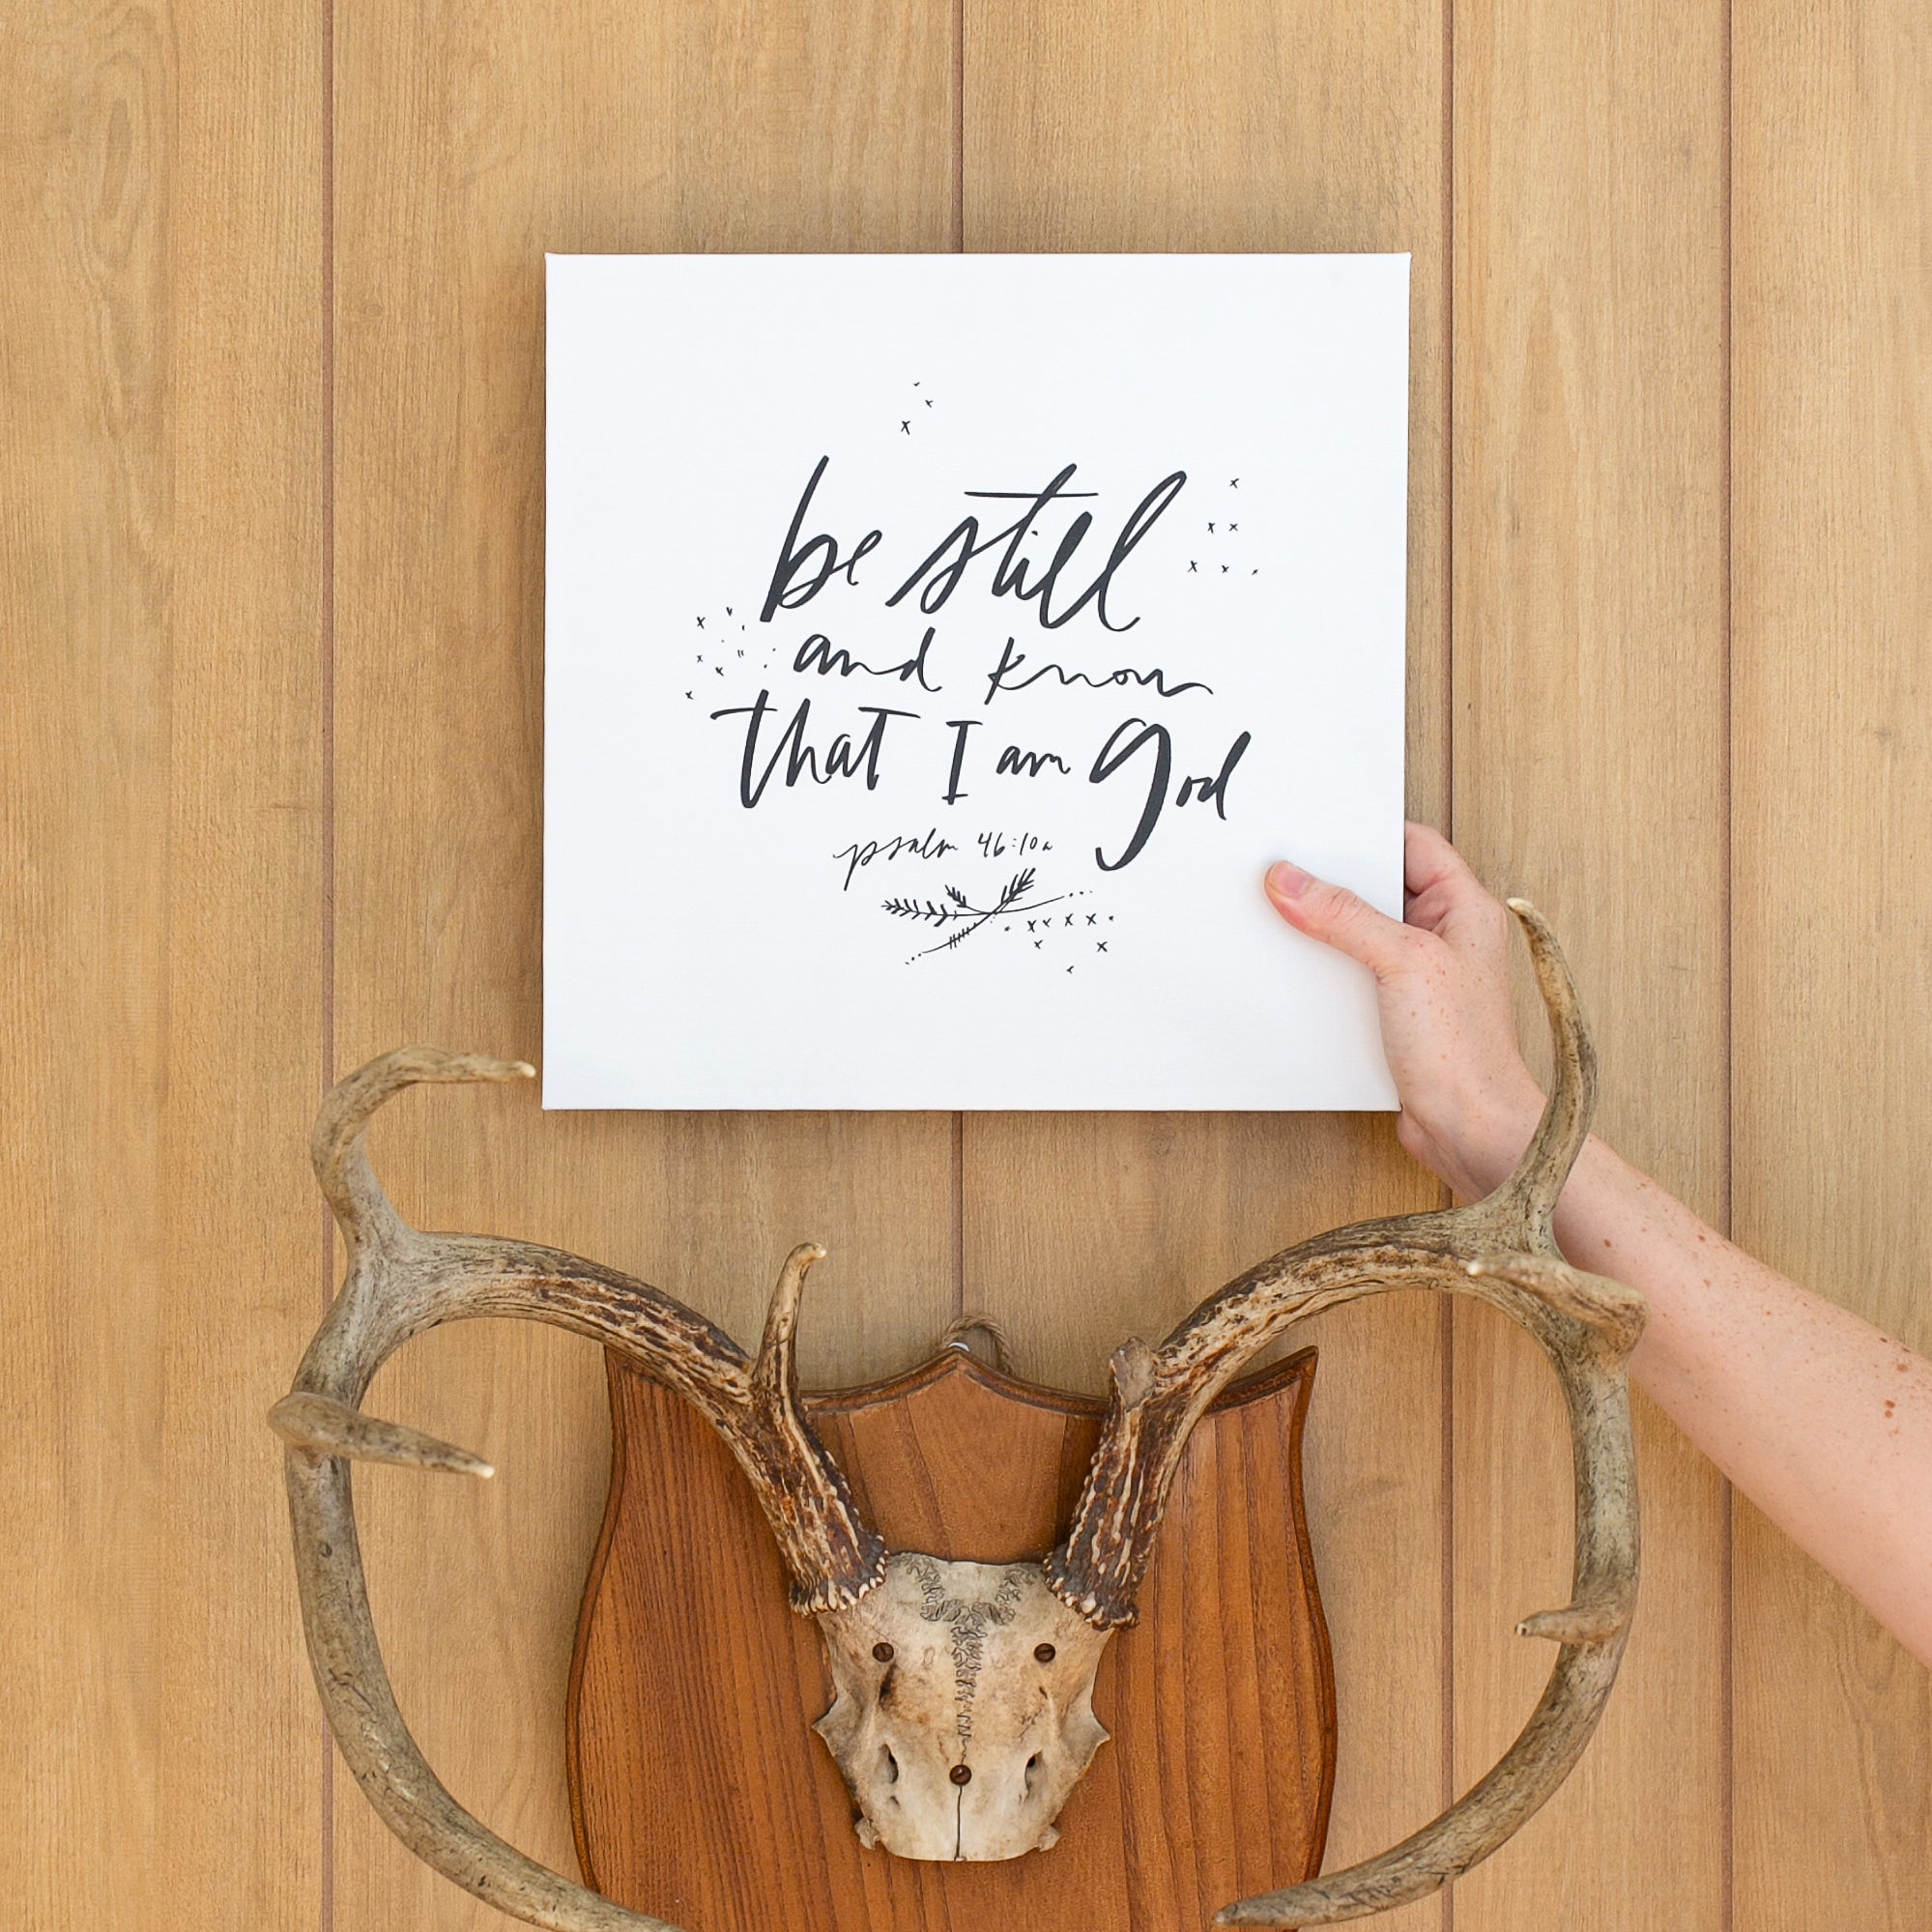 be still
and know
that I am God
psalm 46:10a